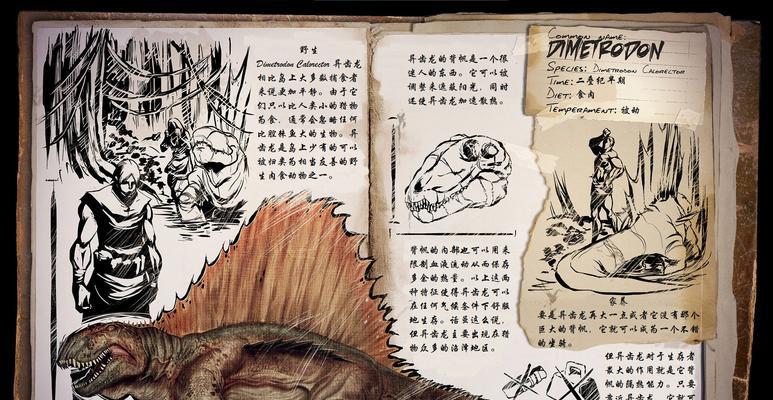 野生
Dimetrodon Calorector 异齿龙
相比岛上大多数捕食者
来说更加平和。由于它
们只以比人类小的猎物
为食,通常会忽略任何
比腔棘鱼大的生物。异
齿龙是岛上少有的可以
被归类为相当友善的野
生肉食动物之一。
异齿龙的背帆是一个很
迷人的东西。它可以被
调整来遮蔽阳光,同时
还使异齿龙加速散热。
背帆的内部也可以用来
限制血液流动从而保存
多余的热量。以上这两
种特征使得异齿龙可以
在任何气候条件下舒服
地生存。话虽这么说,
但异齿龙主要出现在猎
物众多的沼泽地区。
COMMON NAME:
DIMETRODON
SPECIES: DIMETRODON CALORECTOR
TIME: 二叠纪早期
DIET: 食肉
TEMPERAMENT: 被动
家养
要是异齿龙再大一点或者它没有那个
巨大的背帆,它就可以成为一个不错
的坐骑。
但异齿龙对于生存者
最大的作用就是它背
帆的隔热能力。只要
靠近异齿龙,它就可